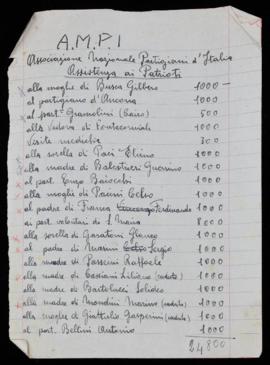 A.M.P.I
Associazione Nazionale Partigiani d'Italia
Assistenza ai Patrioti
alla moglie di Busca Gilbero 1000
al partigiano d'Ancona 1000
al part. Gramolini (Cairo) 500
alla vedova di Pontecorvo 1000
Visita medichia 300
alla sorella di Paci Elimo 1000
alla madre di Balestieri Guerrino 1000
al part. Enzo Baiocchi 1000
alla moglie di Pacini Celso 1000
al padre di Franca Ferdinando 1000
ai part. volontari di S. Maria 8000
alla sorella di Garatoni Glauco 1000
al padre di Marini Sergio 1000
alla madre di Passeri Raffaele 1000
alla madre di Cassiani Liliano (caduto) 1000
alla madre di Bartolucci Solideo 1000
alla madre di Mondini Marino (caduto) 1000
alla moglie di Giattilio Gasperini (caduto) 1000
al part. Bellini Antonio 1000
24800